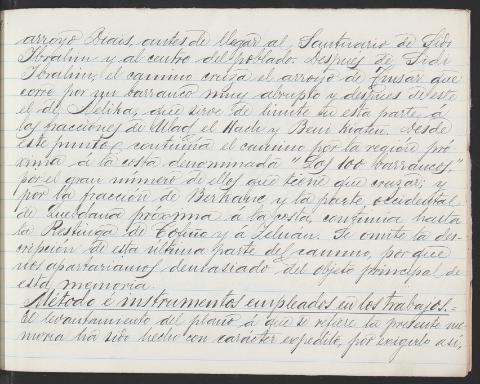 arroyo Biais, antes de llegar al Santuario de Sidi
Ibrahim y al centro del poblado. Despues de Sidi
Ibrahim, el camino cruza el arroyo de que
corre por un barranco muy abrupto y despues de este
el de Melika, que sirve de limite en esta parte á
las fracciones de Ulad el Hach y Beni Desde
este punto, continua el camino por la region pró
xima á la costa denominada "Los 100 barrancos,"
por el gran número de ellos que tiene que cruzar; y
por la fracción de Berkane y la parte occidental
de Quebdana próxima a la costa, continua hasta
la Restinga de Tofiño y á Zeluán. Se omite la des-
cripción de esta última parte del camino, por que
nos apartariamos demasiado del objeto principal de
esta memoria.
Método é instrumentos empleados en los trabajos.=
El levantamiento del plano á que se refiere la presente me-
moria ha sido hecho con carácter expedito, por exigirlo asi,